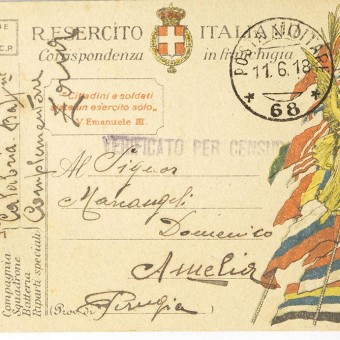 R. ESERCITO ITALIANO
Corrispondenza in franchigia
C.P.
POSTA MILITARE
11.6.18
68
"Cittadini e soldati
siate un esercito solo„
V. Emanuele III.
VERIFICATO PER CENSURA
Al Signor
Marcangeli
Domenico
Amelia
(Prov. di Perugia
Complementare
Compagnia
Squadrone
Batteria
Riparti speciali